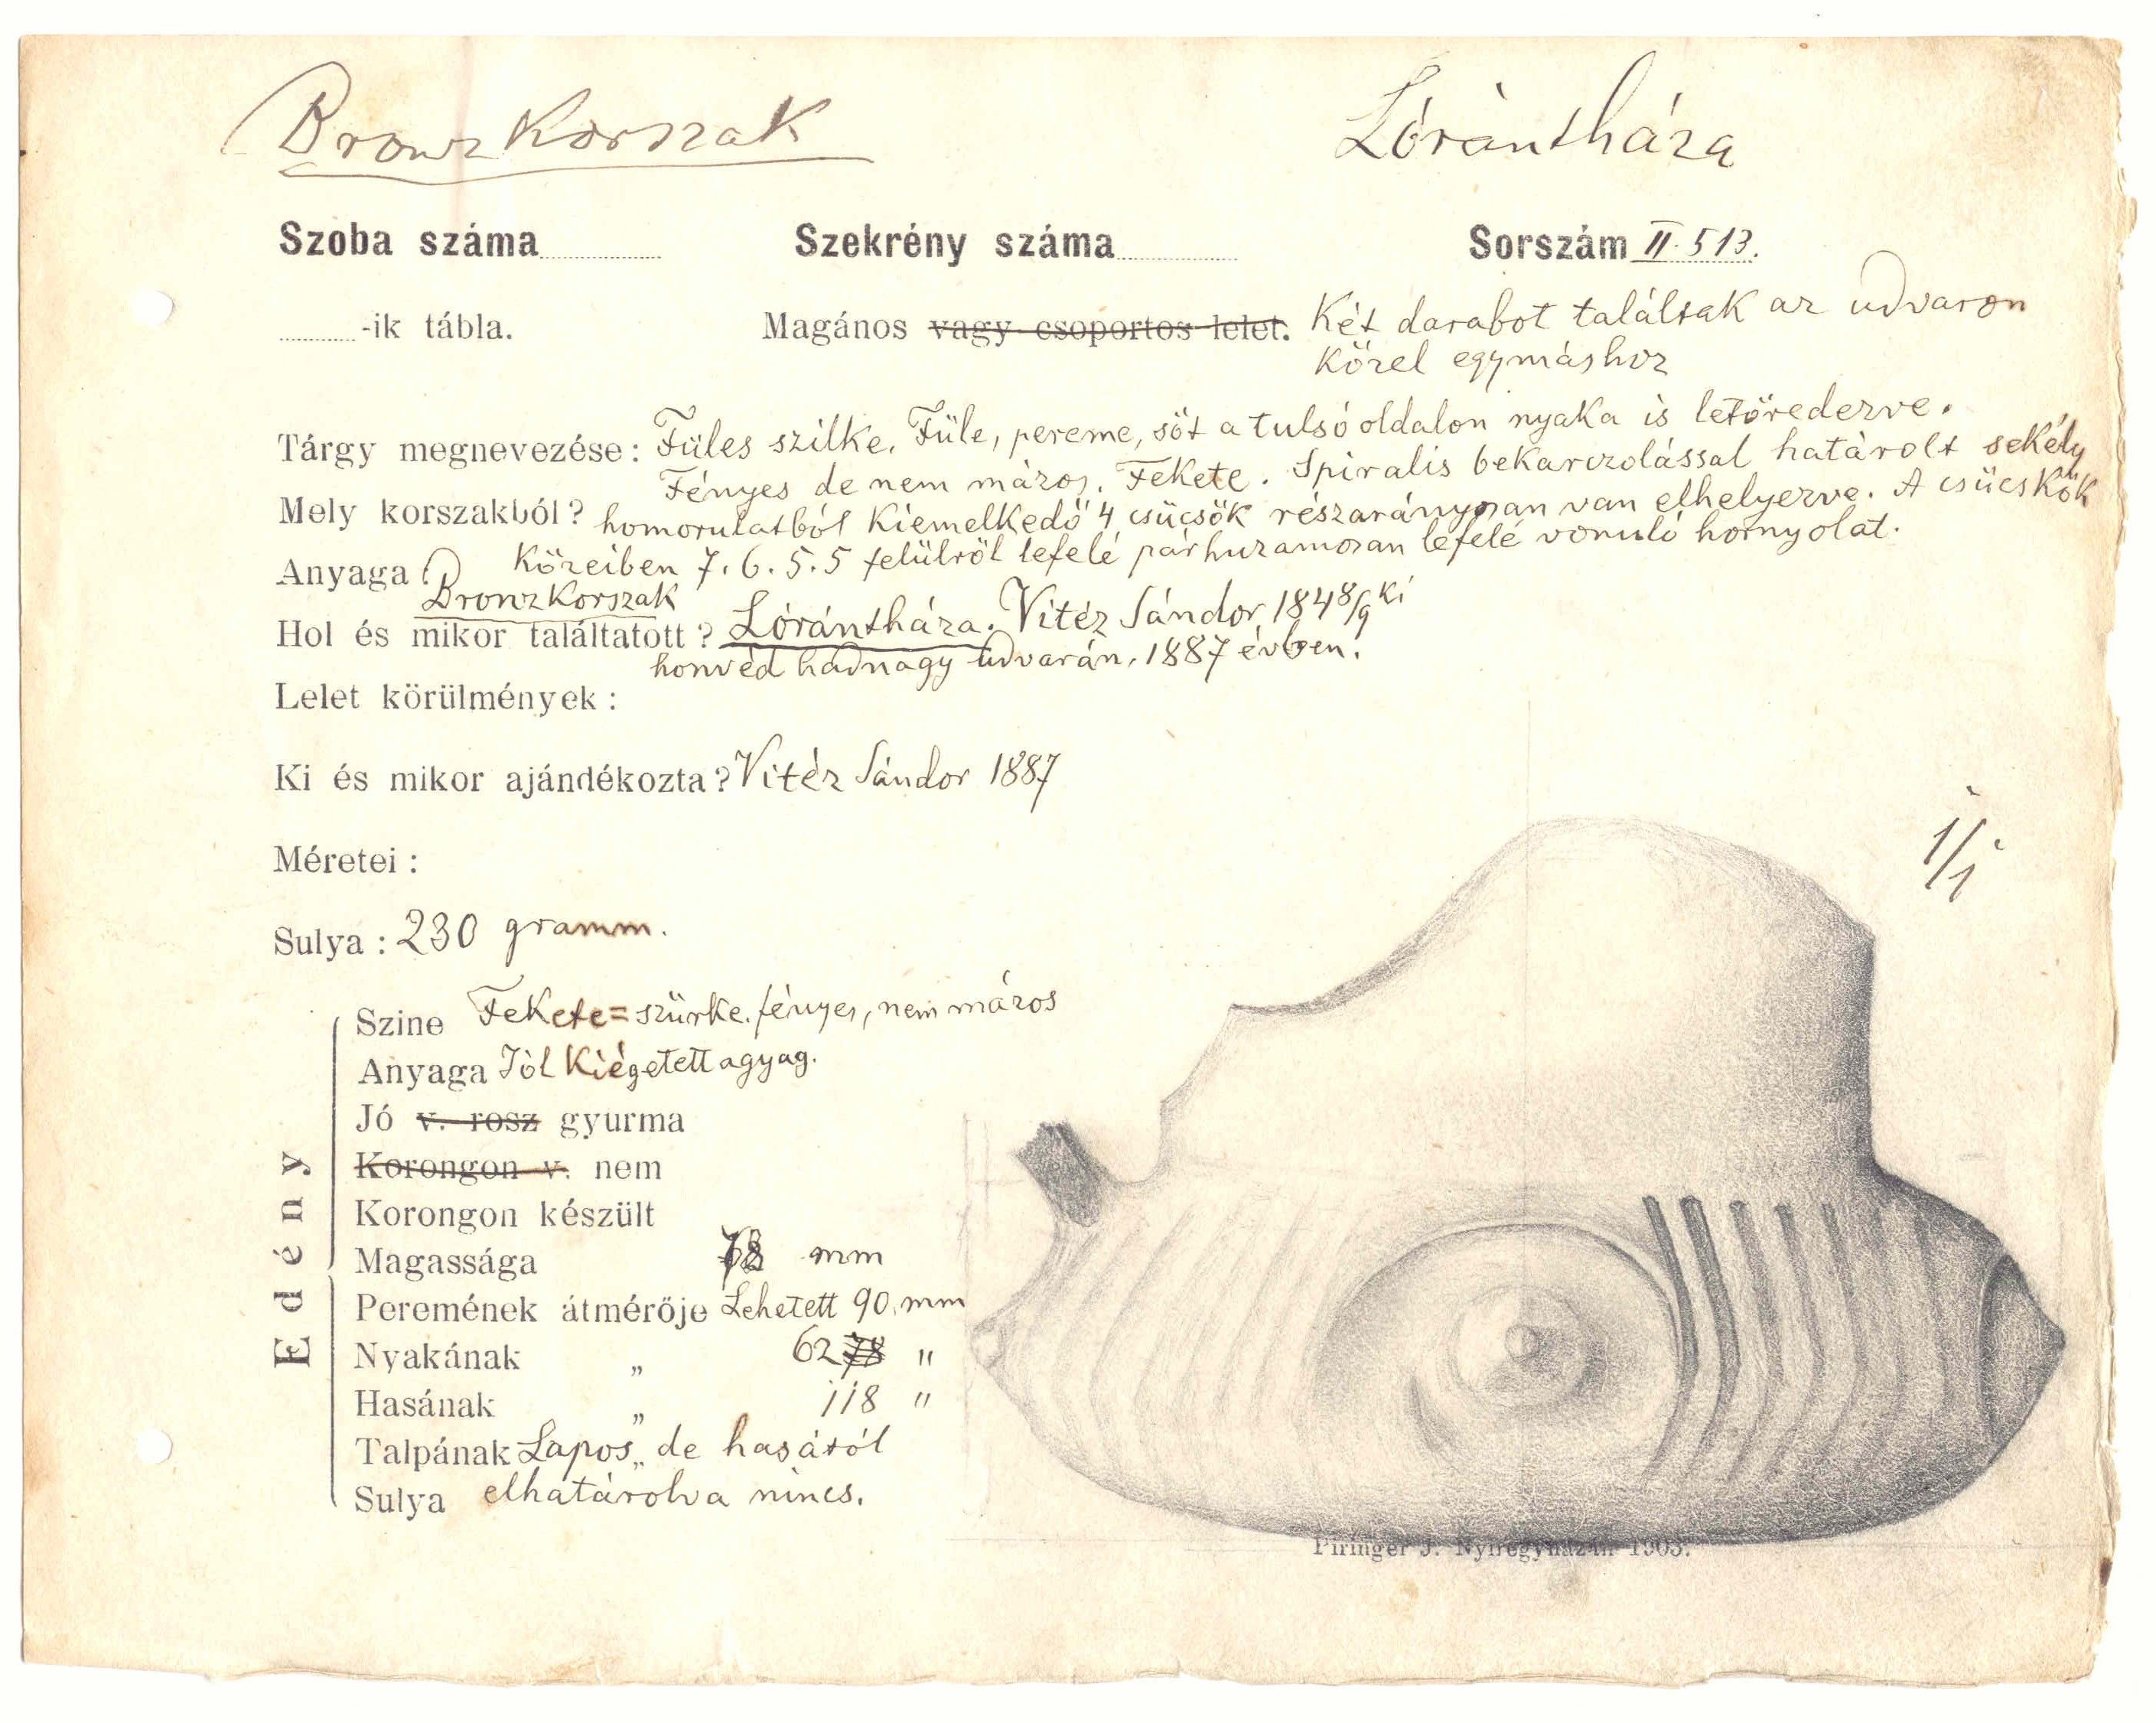 Bronz Korszak
Lórántháza
Szoba száma
Szekrény száma
Sorszám II. 513.
-ik tábla.
Magános vagy csoportos lelet. Két darabot találtak az udvaron
közel egymáshoz
Tárgy megnevezése: Füles szilke. Füle, pereme, söt a tulsó oldalon nyaka is letöredezve.
Fényes de nem mázos. Fekete. Spiralis bekarczolással határolt sekély
Mely korszakból? homorulatból kiemelkedő 4 csücsök részarányosan van elhelyezve. A csücskök
Anyaga közeiben 7. 6. 5. 5 felülröl lefelé párhuzamosan lefelé vonuló hornyolat.
Bronz Korszak
Hol és mikor találtatott? Lórántháza. Vitéz Sándor 1848/9 ki
honvéd hadnagy udvarán, 1887 évben.
Lelet körülmények:
Ki és mikor ajándékozta? Vitéz Sándor 1887
Méretei:
1/1
Sulya: 230 gramm.
Edény
Szine Fekete=szürke. fényes, nem mázos
Anyaga Jól Kiégetett agyag.
Jó v. rosz gyurma
Korongon v. nem
Korongon készült
Magassága mm
Peremének átmérője Lehetett 90 mm
Nyakának „ 62 78 "
Hasának „ 118 "
Talpának „ Lapos, de hasától
Sulya elhatárolva nincs.
Piringer J. Nyiregyházán 1903.